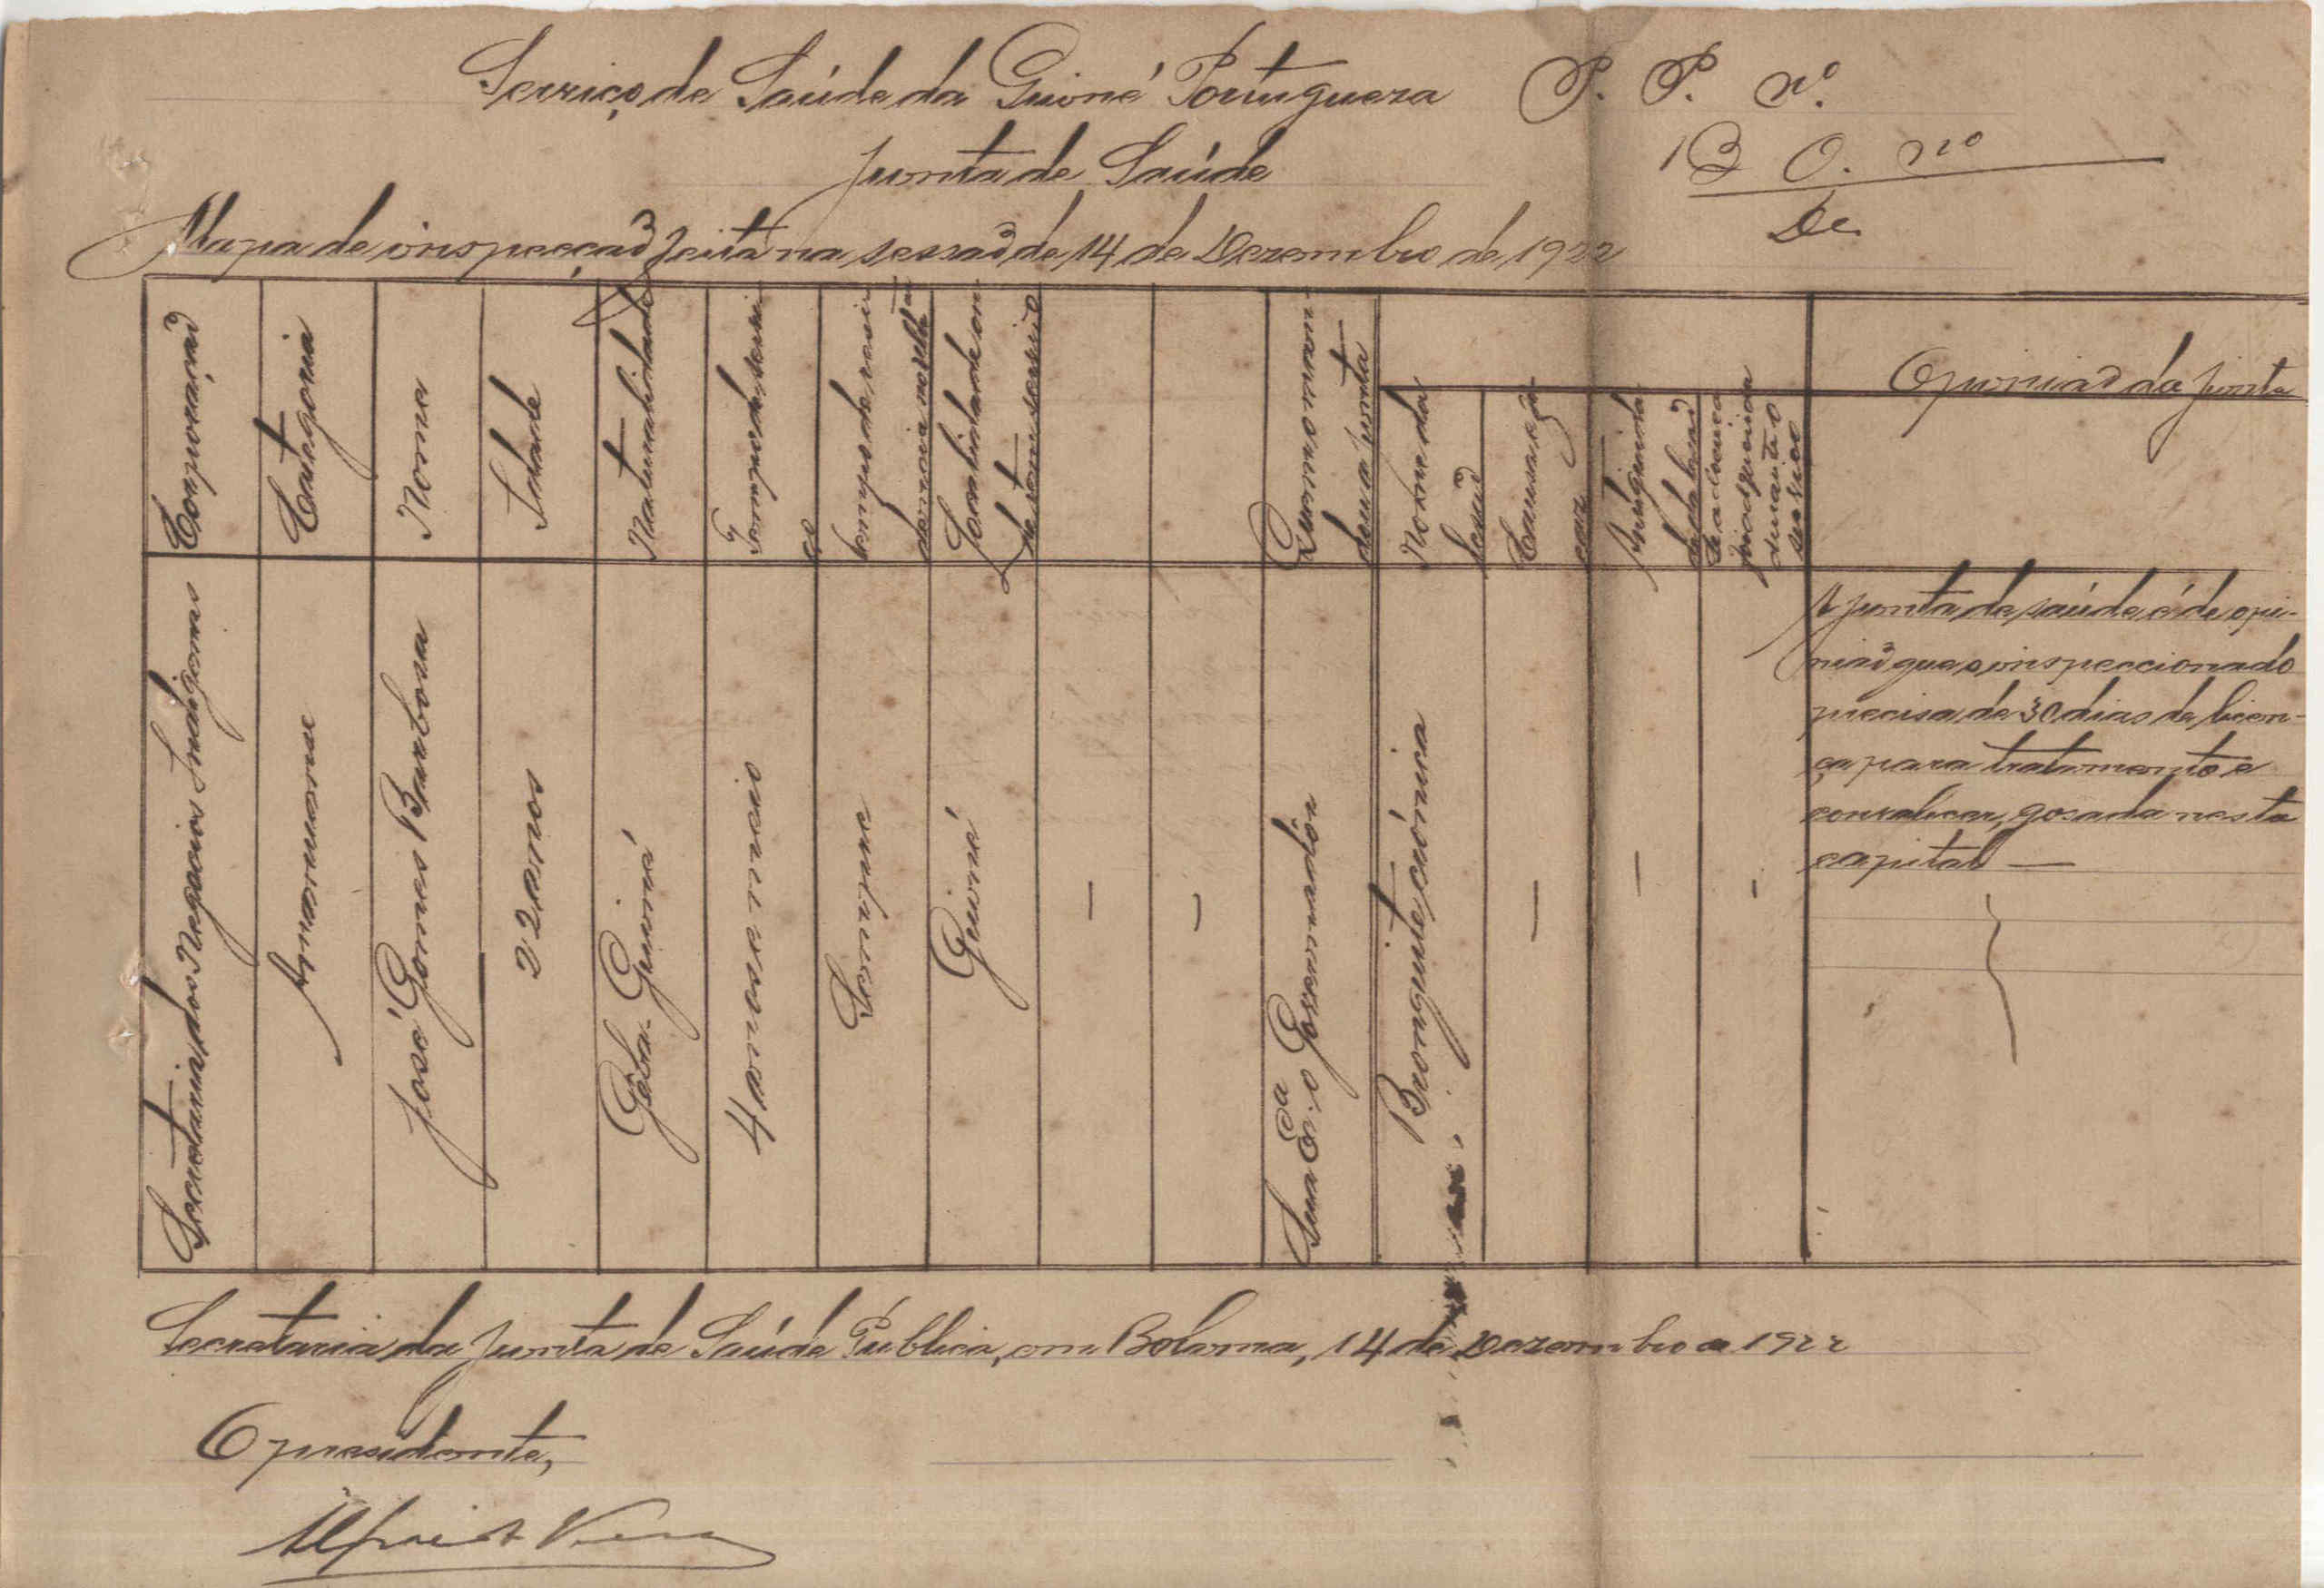 Serviço de Saúde da Guiné Portuguesa P. P. nº.
Junta de Saúde B O. nº
De
Mapa de inspecção feita na sessão de 14 de Dezembro de 1922
Corporação
Catagoria
Nome
Idade
Naturalidade
Tempo de servi
ço
Tempo de resi
dencia no ultra
Quem o man-
dou a Junta
Nome da
lesão
Opinião da Junta
Secretaria dos Negocios Indigenas
Amanuense
José Gomes Barbosa
22 anos
Geba - Guiné
4 anos e meio
Sempre
Guiné
—
—
Sua Exª o Governadôr
Bronquite crónica
—
—
-
A junta de saúde é de opi-
nião que o inspeccionado
precisa de 30 dias de licen-
ça para tratamento e
convalecer, gosada nesta
capital —
Secretaria da Junta de Saúde Pública, em Bolama, 14 de Dezembro de 1922
O presidente,